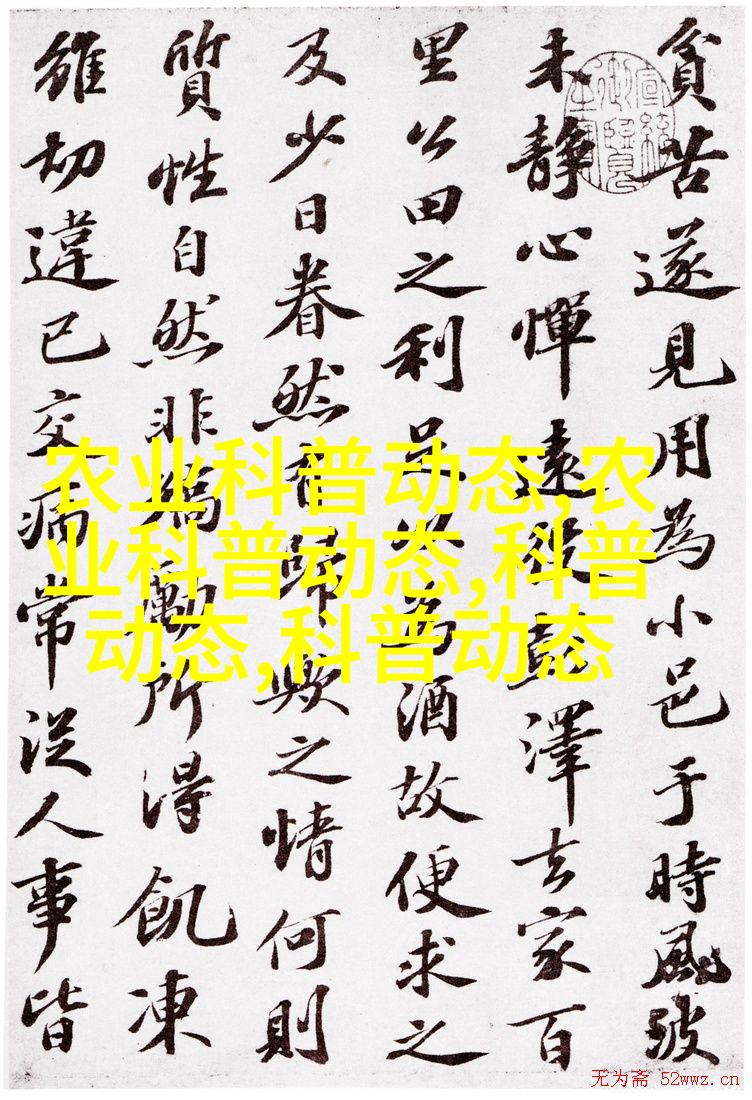 貧苦遂見用為小邑于時風波
未靜心憚遠役彭澤去家百
里公田之利足以為酒故便求之
及少日眷然有歸歟之情何則
質性自然非矯勵所得飢凍
雖切違己交病常從人事皆
农业科普动态,农
业科普动态,科普
动态,科普动态
无为斋 52wwz.cn